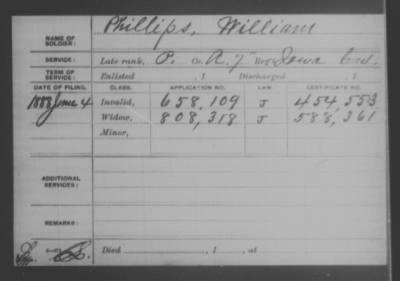 Phillips, William
NAME OF SOLDIER:
SERVICE: Late rank, P. Co. A. 7" Reg Iowa Cav.
TERM OF SERVICE: Enlisted , 1 Discharged , 1
DATE OF FILING. CLASS. APPLICATION NO. LAW. CERTIFICATE NO.
1888 June 4 Invalid, 658,109 J 454,553
Widow, 808,318 J 588,361
Minor,
ADDITIONAL SERVICES:
REMARKS:
Died , 1 , at